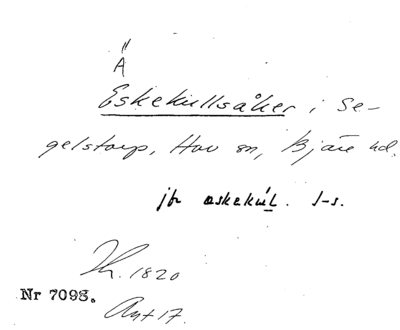 Ä
Eskekullsåker i Se-
gelstorp, Hov sn, Bjäre hd.
jfr eskekúl. l-s.
Th. 1820
Nr 7098.
Ant 17.